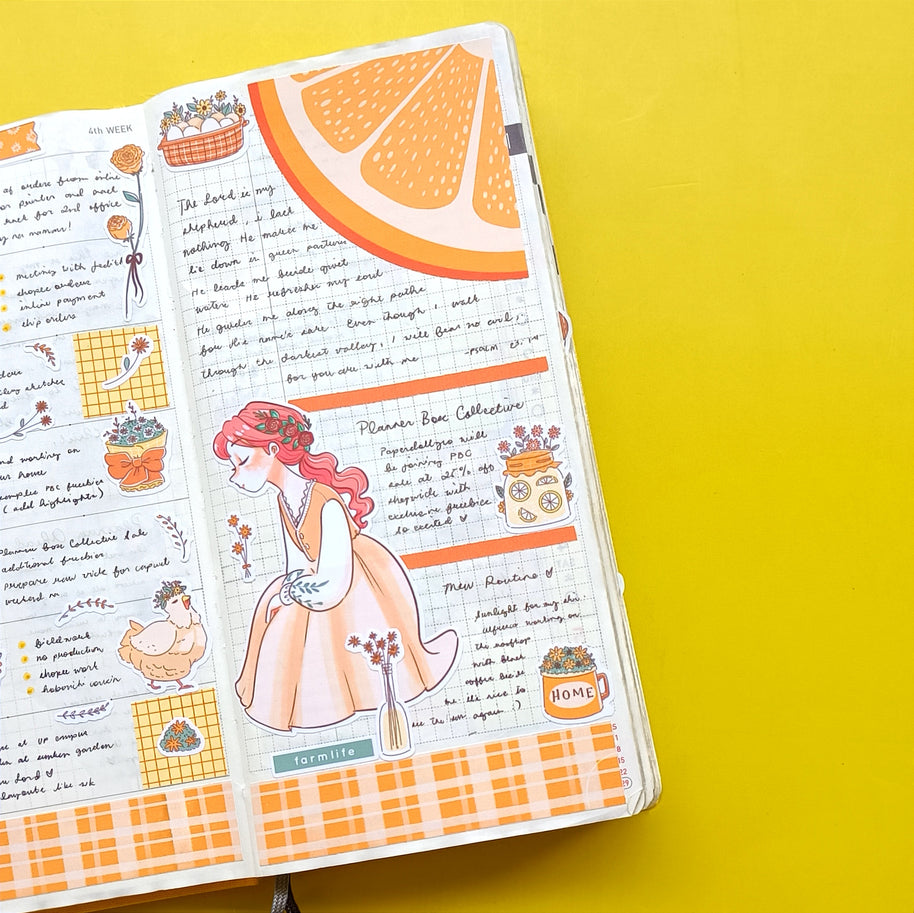 4th WEEK
of orders from inline
printer and
for 2nd office
meeting with
shopee orders
inline payment
ship orders
and working on
house
PBC freebies
(add highlighter)
Planner Box Collective Sale
additional freebies
prepare raw vids for capcut
weekend
fieldwork
no production
shopee work
at UP campus
at sunken garden
Lord
layouts like
The Lord is my
shepherd, i lack
nothing. He makes me
lie down in green pastures
He leads me beside quiet
waters. He refreshes my soul
He guides me along the right paths
for His name's sake. Even though i walk
through the darkest valley, i will fear no evil,
for you are with me.
-PSALM 23:1-4
Planner Box Collective
Paperdollzco will
be joining PBC
sale at 25% off
shopwide with
exclusive freebies
so excited
New Routine
sunlight for my
working on
the rooftop
with black
coffee
it's nice to
see the sun again :)
HOME
farmlife
5
1
8
15
22
29